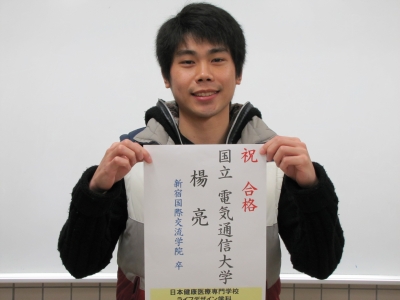 祝 合格
国立 電気通信大学
楊 亮
新宿国際交流学院 卒
日本健康医療専門学校
ライフデザイン学科